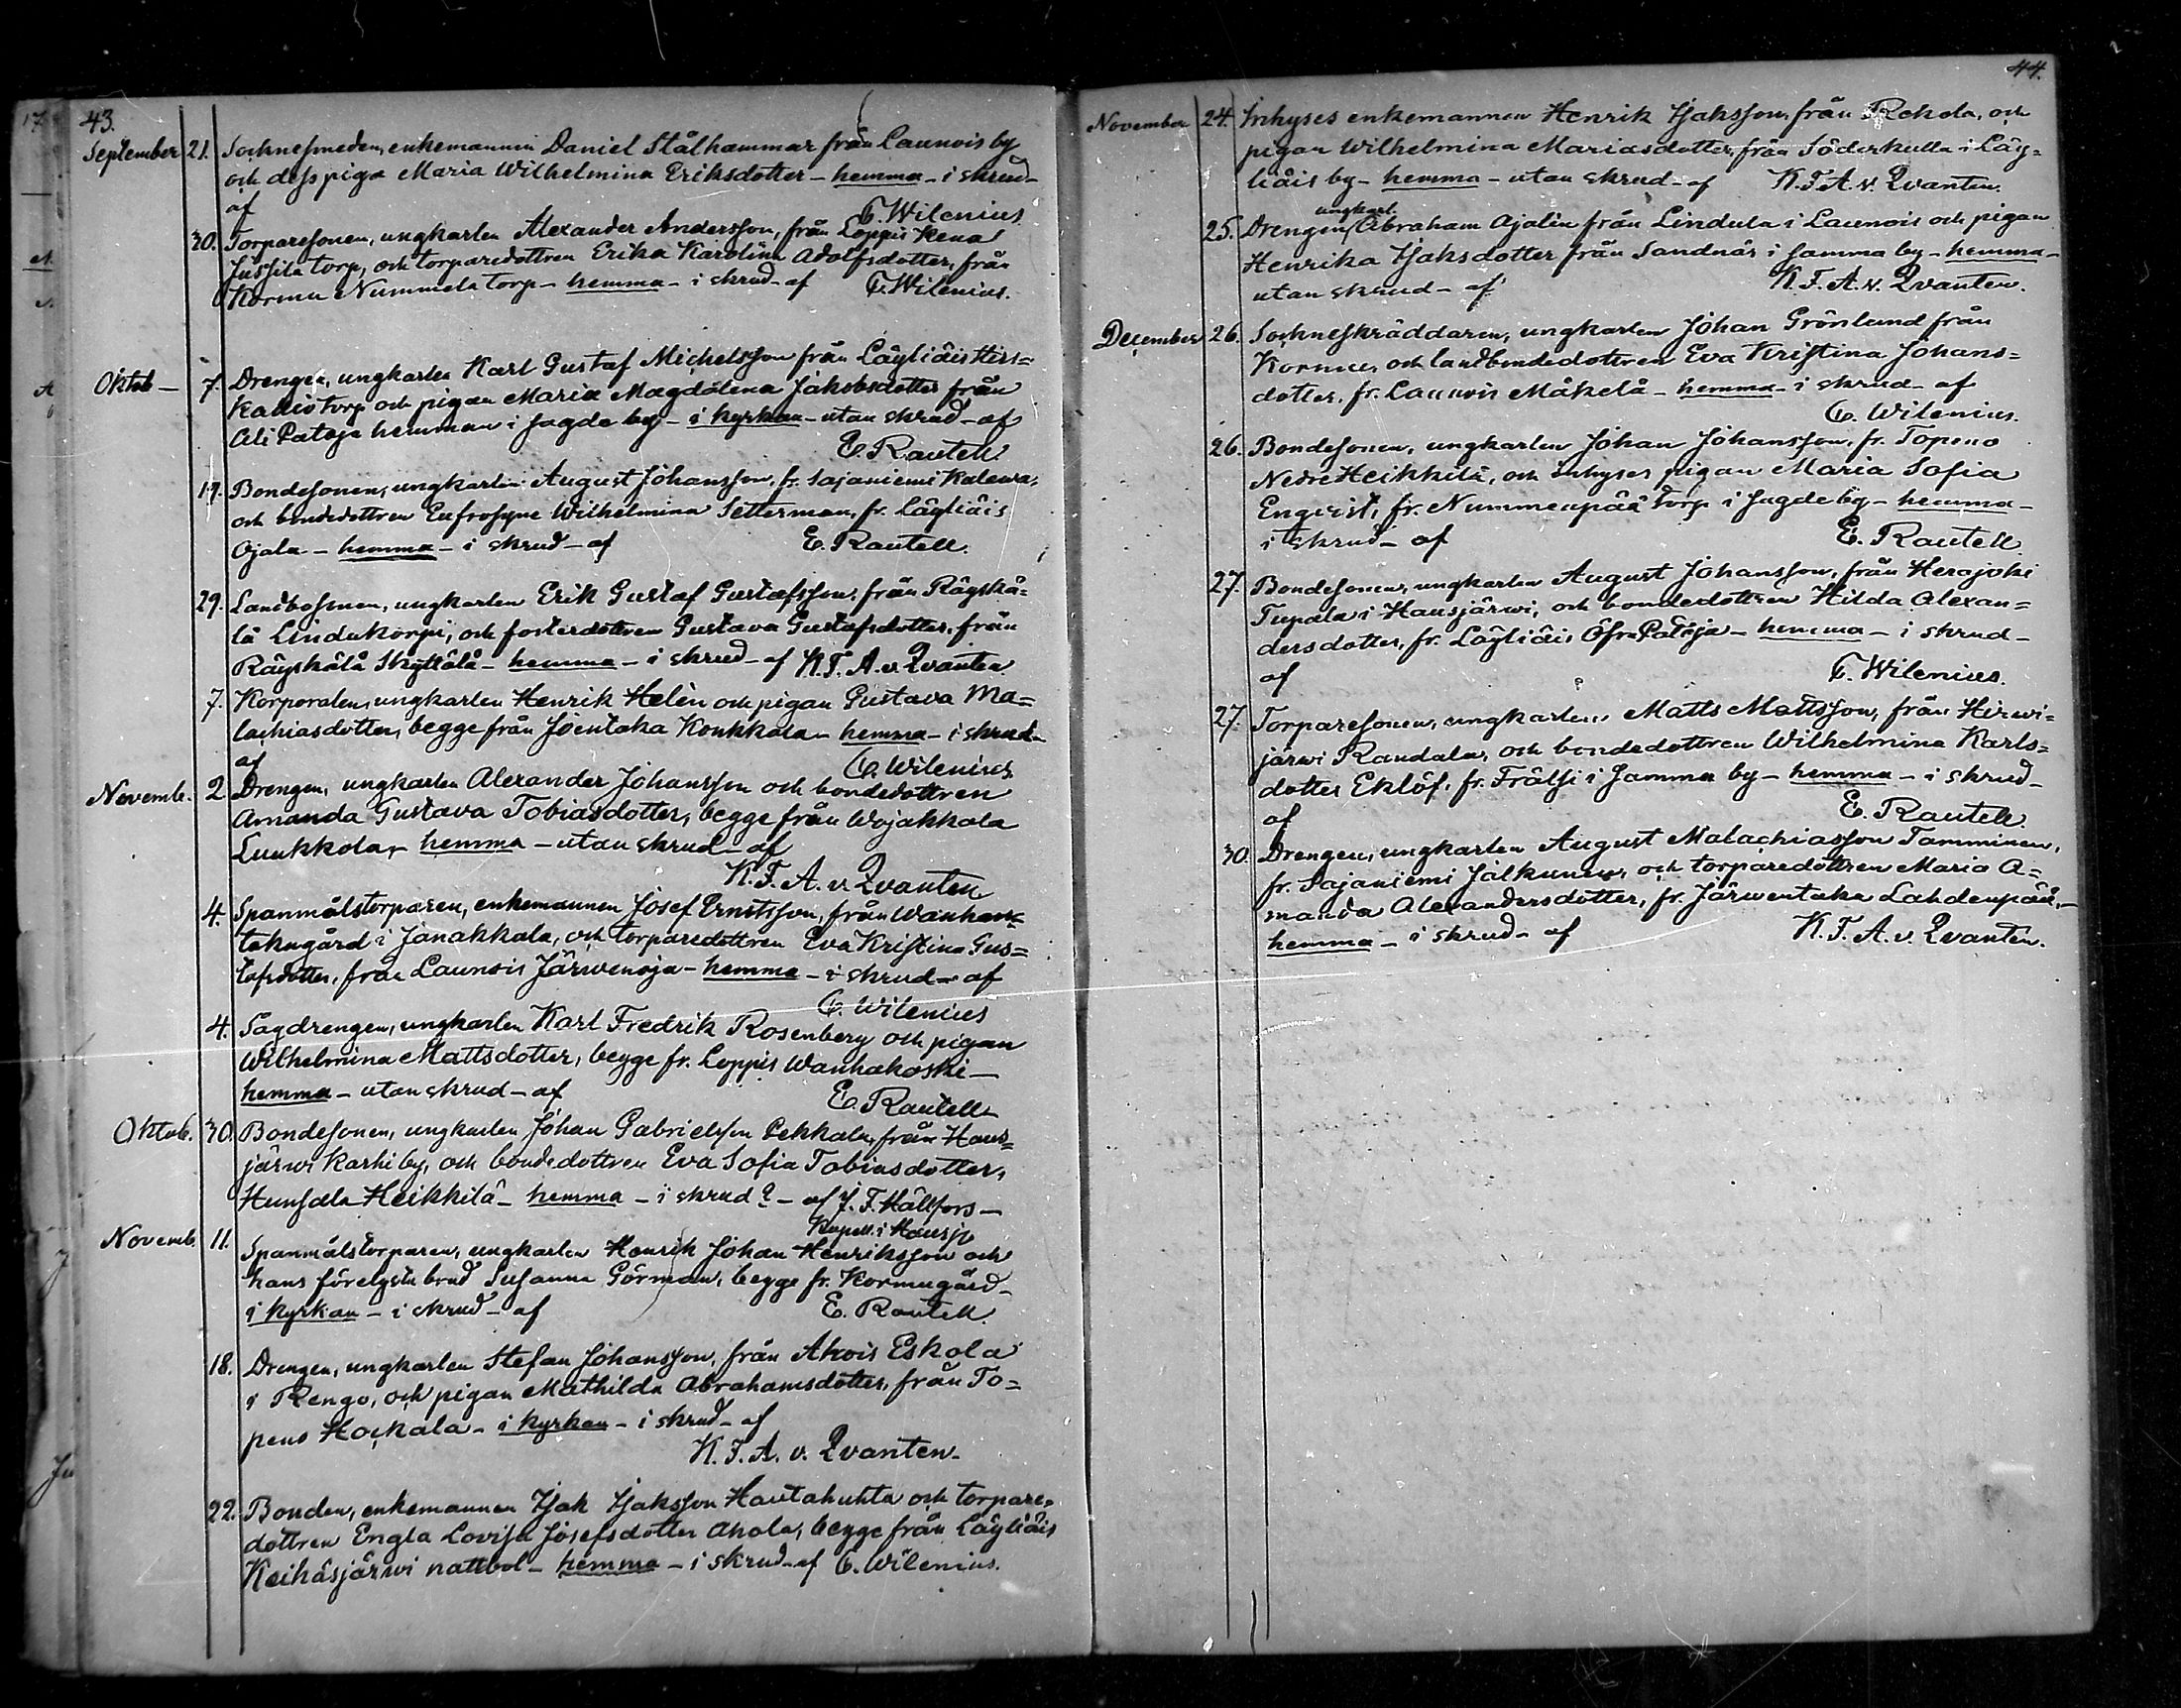 43.
September 21. Socknesmeden, enkemannen Daniel Stålhammar från Launois by
och dess piga Maria Wilhelmina Eriksdotter - hemma - i skrud -
af C. Wilenius
30. Torparesonen, ungkarlen Alexander Andersson, från Loppis Kena
Jussila torp, och torparedottren Erika Karolina Adolfsdotter, från
Kormu Nummela torp - hemma - i skrud - af C. Wilenius.
Oktob - 7. Drengen, ungkarlen Karl Gustaf Michelsson från Läyliäis Hirs=
kallio torp och pigan Maria Magdalena Jakobsdotter från
Ali Patoja hemman i sagde by - i kyrkan - utan skrud - af
E. Rautell
19. Bondesonen, ungkarlen August Johansson, fr. Sajaniemi Kalewa,
och bondedottren Eufrosyne Wilhelmina Setterman, fr. Läyliäis
Ojala - hemma - i skrud - af E. Rautell.
29. Landbosonen, ungkarlen Erik Gustaf Gustafsson, från Räyskä=
lä Lindukorpi, och fosterdottren Gustava Gustafsdotter, från
Räyskälä Skyttälä - hemma - i skrud - af K. F. A. v. Qvanten
7. Korporalen, ungkarlen Henrik Helén och pigan Gustava Ma=
lachiasdotter, begge från Joentaka Konkkala - hemma - i skrud -
af C. Wilenius
Novemb. 2. Drengen, ungkarlen Alexander Johansson och bondedottren
Amanda Gustava Tobiasdotter, begge från Wojakkala
Luukkola, - hemma - utan skrud - af
K. F. A. v. Qvanten
4. Spanmålstorparen, enkemannen Josef Ernstsson, från Wanhan=
takugård i Janakkala, och torparedottren Eva Kristina Gus=
tafsdotter, från Launois Järwenoja - hemma - i skrud - af
C. Wilenius
4. Sagdrengen, ungkarlen Karl Fredrik Rosenberg och pigan
Wilhelmina Mattsdotter, begge fr. Loppis Wanhakoski -
hemma - utan skrud - af E. Rautell
Oktob. 30. Bondesonen, ungkarlen Johan Gabrielsson Pekkala, från Haus=
järwi Karhi by, och bondedottren Eva Sofia Tobiasdotter,
Hunsala Heikkilä - hemma - i skrud? - af J. F. Hällfors -
Kapell. i Hausjo
Novemb. 11. Spanmålstorparen, ungkarlen Henrik Johan Henriksson och
hans förelgsta brud Susanna Görman, begge fr. Kormugård -
i kyrkan - i skrud - af E. Rautell.
18. Drengen, ungkarlen Stefan Johansson, från Ahois Eskola
i Rengo, och pigan Mathilda Abrahamsdotter, från To=
peno Hockala - i kyrkan - i skrud - af
K. F. A. v. Qvanten.
22. Bonden, enkemannen Isak Isaksson Hautahuhta och torpare=
dottren Engla Lovisa Josefsdotter Ahola, begge från Läyliäis
Keihäsjärwi nattbol - hemma - i skrud - af C. Wilenius.
44.
November 24. Inhyses enkemannen Henrik Isaksson, från Rekola, och
pigan Wilhelmina Mariasdotter, från Söderkulla i Läy=
liäis by - hemma - utan skrud - af K. F. A. v. Qvanten.
ungkarl.
25. Drengen Abraham Ajalin från Lindula i Launois och pigan
Henrika Isaksdotter från Sandnäs i samma by - hemma -
utan skrud - af K. F. A. v. Qvanten.
December 26. Sockneskräddaren, ungkarlen Johan Grönlund från
Kormu, och landbondedottren Eva Kristina Johans=
dotter, fr. Launois Mäkelä - hemma - i skrud - af
C. Wilenius.
26. Bondesonen, ungkarlen Johan Johansson, fr. Topeno
Nedre Heikkilä, och Inhyses pigan Maria Sofia
Enqvist, fr. Nummenpää torp i sagde by - hemma -
i skrud - af E. Rautell
27. Bondesonen, ungkarlen August Johansson, från Herajoki
Tupala i Hausjärwi, och bondedottren Hilda Alexan=
dersdotter, fr. Läyliäis Öfre Patoja - hemma - i skrud -
af C. Wilenius.
27. Torparesonen, ungkarlen Matts Mattsson, från Hirwi=
järwi Randala, och bondedottren Wilhelmina Karls=
dotter Eklöf, fr. Frälsi i samma by - hemma - i skrud -
af E. Rautell.
30. Drengen, ungkarlen August Malachiasson Tamminen,
fr. Sajaniemi Jalkunen, och torparedottren Maria A=
manda Alexandersdotter, fr. Järwentaka Lahdenpää, -
hemma - i skrud - af K. F. A. v. Qvanten.